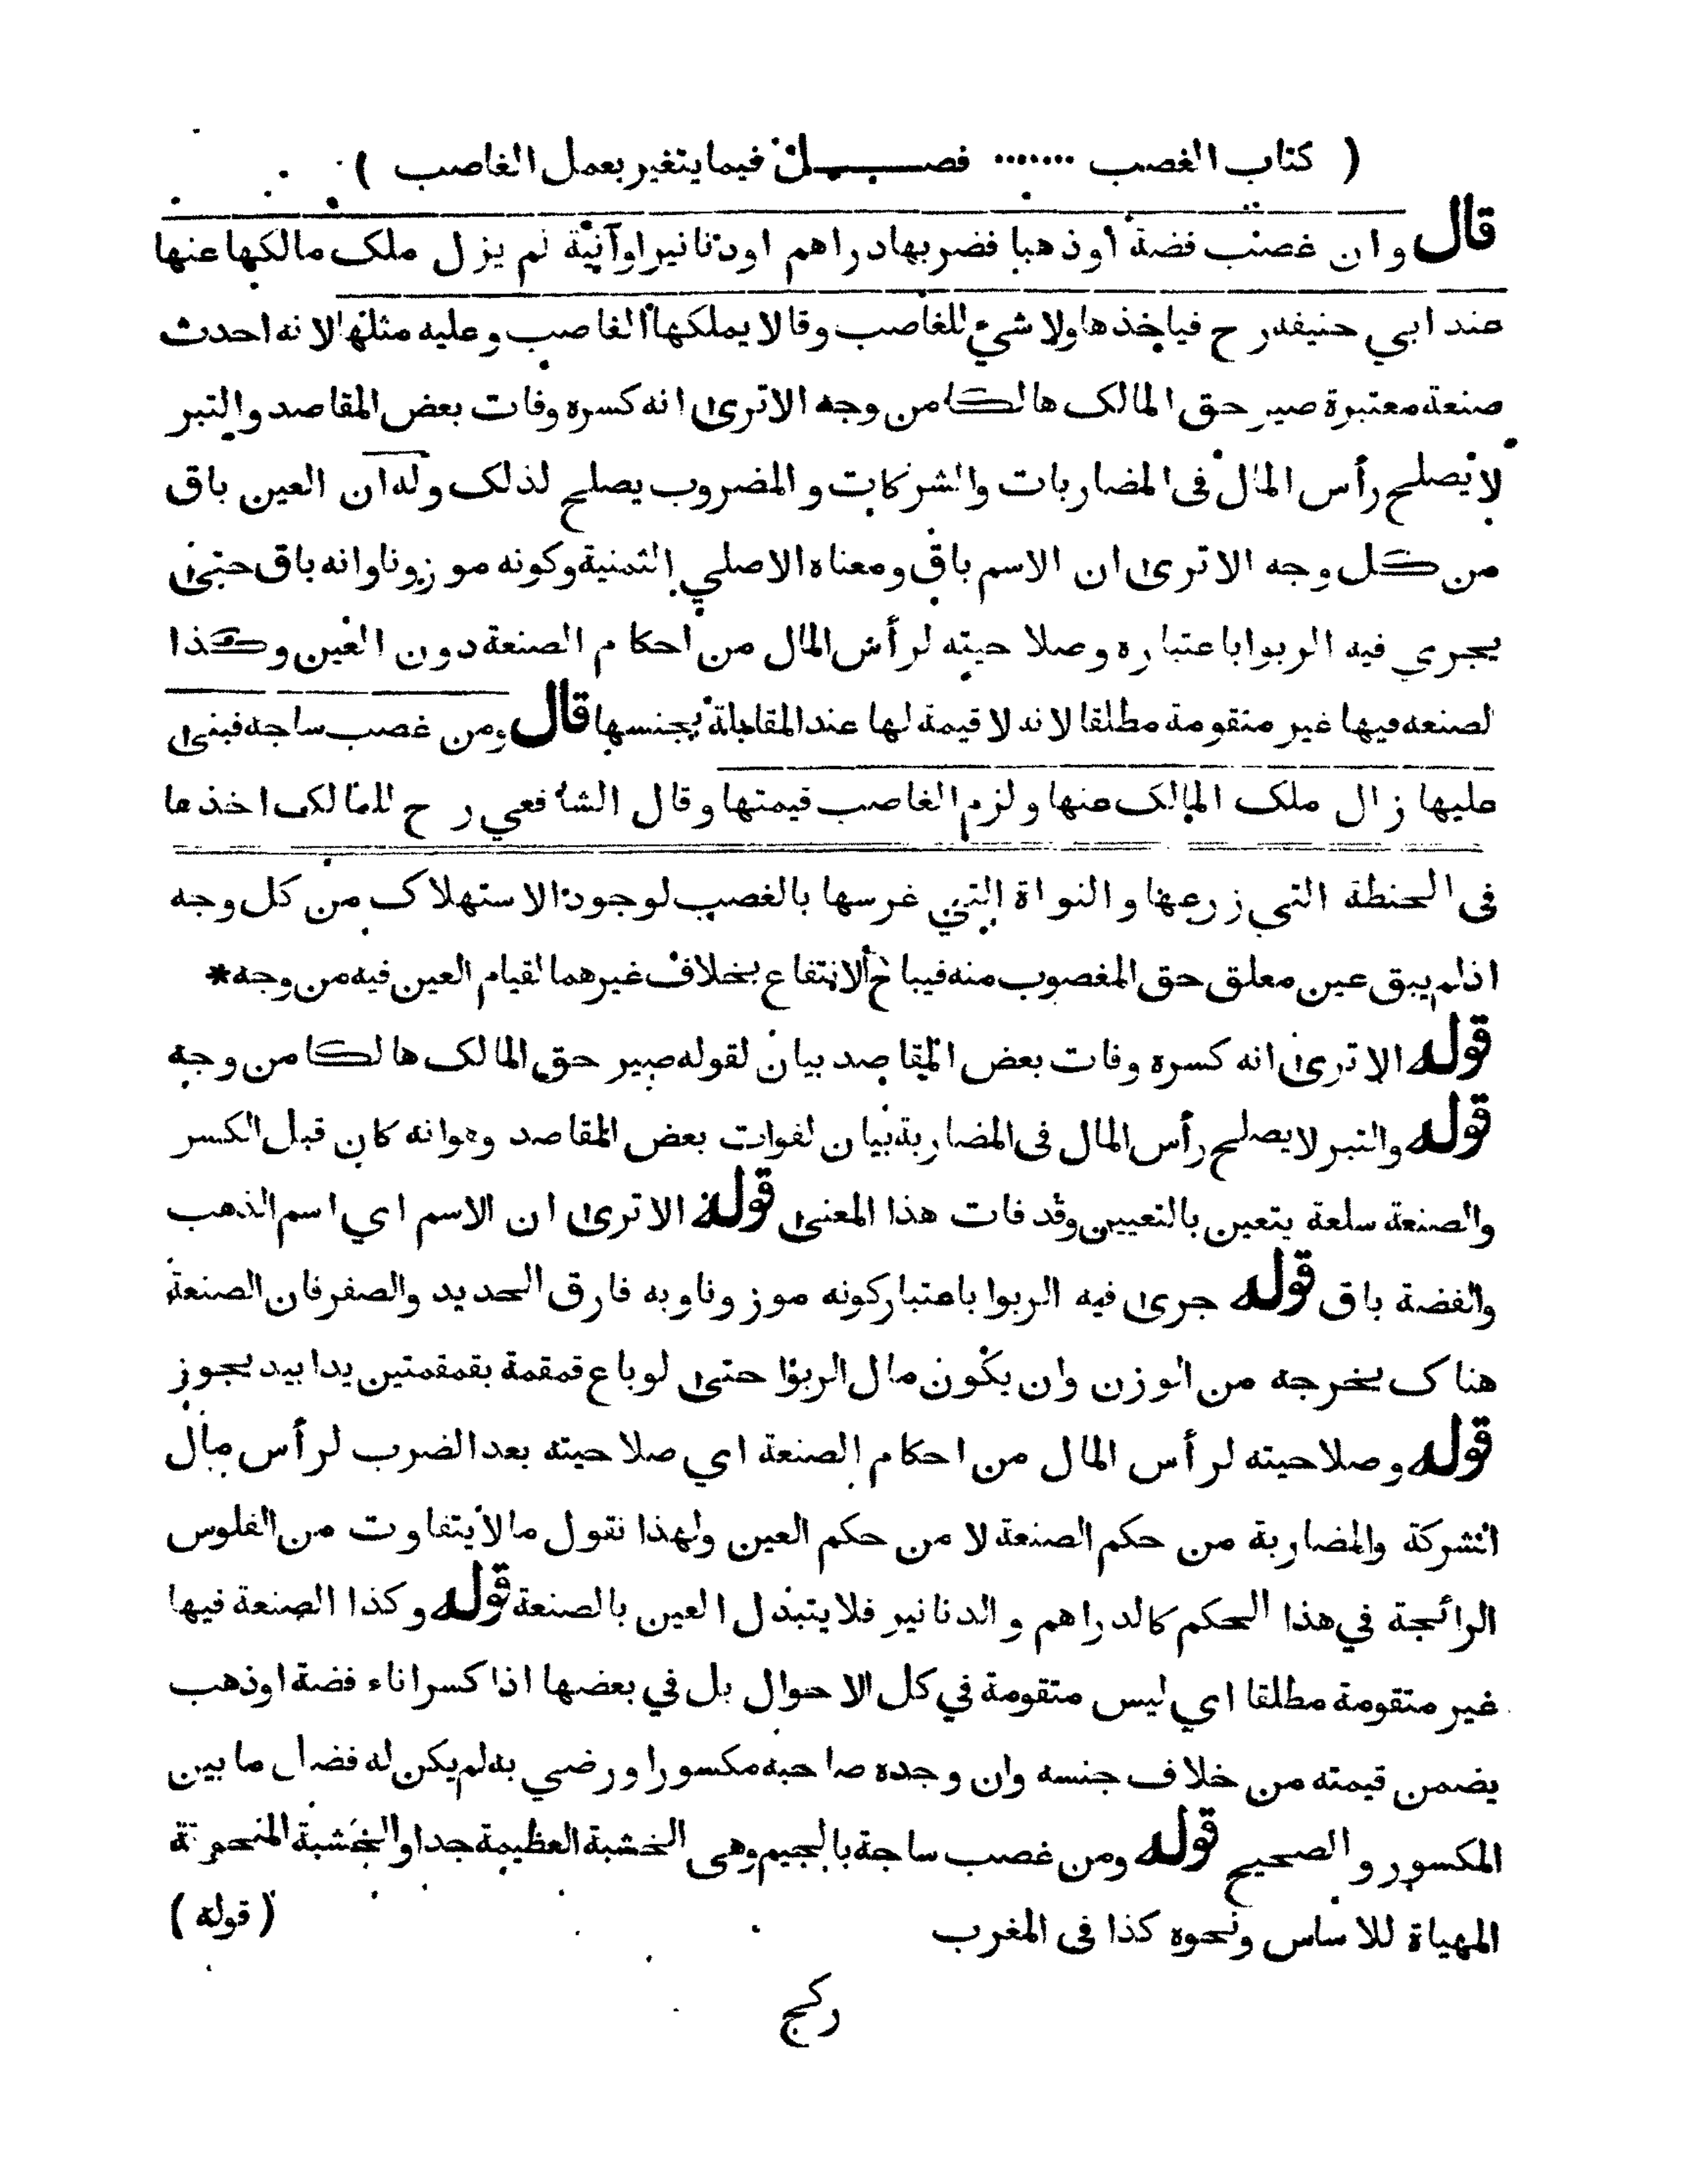 ( كتاب الغصب ....... فصـــل فيما يتغير بعمل الغاصب )
قال وان غصب فضة اوذهبا فضربهادراهم اودنانيراوآنية لم يزل ملك مالكهاعنها
عند ابي حنيفه ر ح فياخذهاولا شيء للغاصب وقالا يملكها الغاصب وعليه مثلها لانه احدث
صنعة معتبرة صير حق المالك هالكا من وجه الا ترى انه كسره وفات بعض المقاصد والتبر
لا يصلح رأس المال فى المضاربات والشركات والمضروب يصلح لذلك وله ان العين باق
من كل وجه الا ترى ان الاسم باق ومعناه الاصلي الثمنية وكونه موزونا وانه باق حتى
يجري فيه الربوا باعتباره وصلاحيته لرأس المال من احكام الصنعة دون العين وكذا
لصنعه فيها غير متقومة مطلقا لانه لا قيمة لها عند المقابلة بجنسها قال ومن غصب ساجه فبنى
عليها زال ملك المالك عنها ولزم الغاصب قيمتها وقال الشافعي ر ح للمالك اخذها
فى الحنطة التي زرعها والنواة التي غرسها بالغصب لوجود الاستهلاك من كل وجه
اذلم يبق عين معلق حق المغصوب منه فيباح الانتفاع بخلاف غيرهما لقيام العين فيه من وجه*
قوله الا ترى انه كسره وفات بعض المقاصد بيان لقوله صير حق المالك هالكا من وجه
قوله والتبر لا يصلح رأس المال فى المضاربة بيان لفوات بعض المقاصد وهوانه كان قبل الكسر
والصنعة سلعة يتعين بالتعيين وقد فات هذا المعنى قوله الا ترى ان الاسم اي اسم الذهب
والفضة باق قوله جرى فيه الربوا باعتبار كونه موزونا وبه فارق الحديد والصفر فان الصنعة
هناك يخرجه من الوزن وان يكون مال الربوا حتى لو باع قمقمة بقمقمتين يدا بيد يجوز
قوله وصلاحيته لرأس المال من احكام الصنعة اي صلاحيته بعد الضرب لرأس مال
الشركة والمضاربة من حكم الصنعة لا من حكم العين ولهذا نقول مالا يتفاوت من الفلوس
الرائجة في هذا الحكم كالدراهم والدنانير فلا يتبدل العين بالصنعة قوله وكذا الصنعة فيها
غير متقومة مطلقا اي ليس متقومة في كل الاحوال بل في بعضها اذا كسر اناء فضة اوذهب
يضمن قيمته من خلاف جنسه وان وجده صاحبه مكسورا ورضي به لم يكن له فضل ما بين
المكسور والصحيح قوله ومن غصب ساجة بالجيم وهى الخشبة العظيمة جدا والخشبة المنحوتة
المهياة للاساس ونحوه كذا فى المغرب
( قوله )
ركح